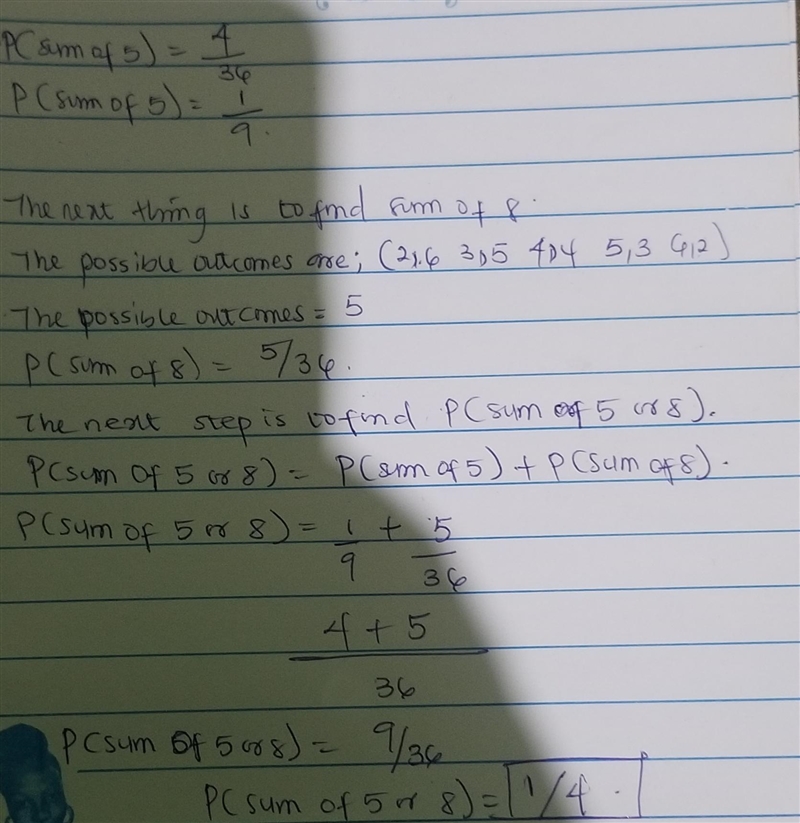 P(sum of 5) = 4/36
P(sum of 5) = 1/9.
The next thing is to find sum of 8.
The possible outcomes are; (2,6 3,5 4,4 5,3 6,2)
The possible outcomes = 5
P(sum of 8) = 5/36.
The next step is to find P(sum of 5 or 8).
P(sum of 5 or 8) = P(sum of 5) + P(sum of 8).
P(sum of 5 or 8) = 1/9 + 5/36
4 + 5
36
P(sum of 5 or 8) = 9/36
P(sum of 5 or 8) = 1/4.